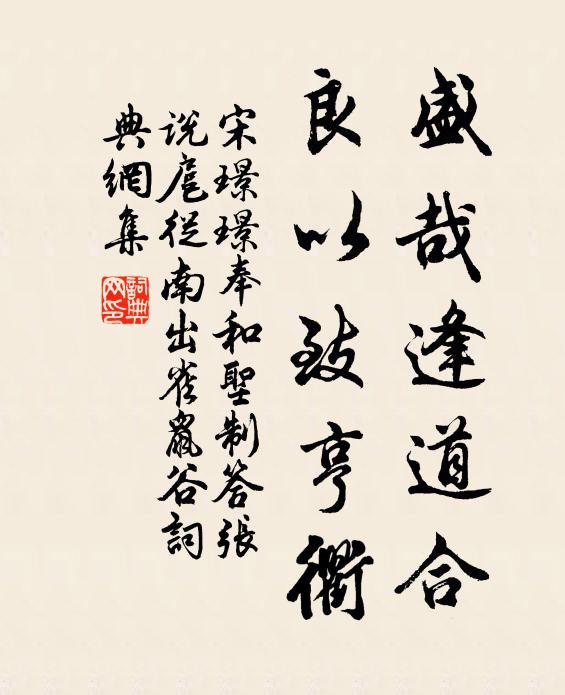 盛哉逢道合
良以致亨衢
宋璟璟奉和聖制答張
說扈從南出雀鼠谷詞
典網集
詞典网印